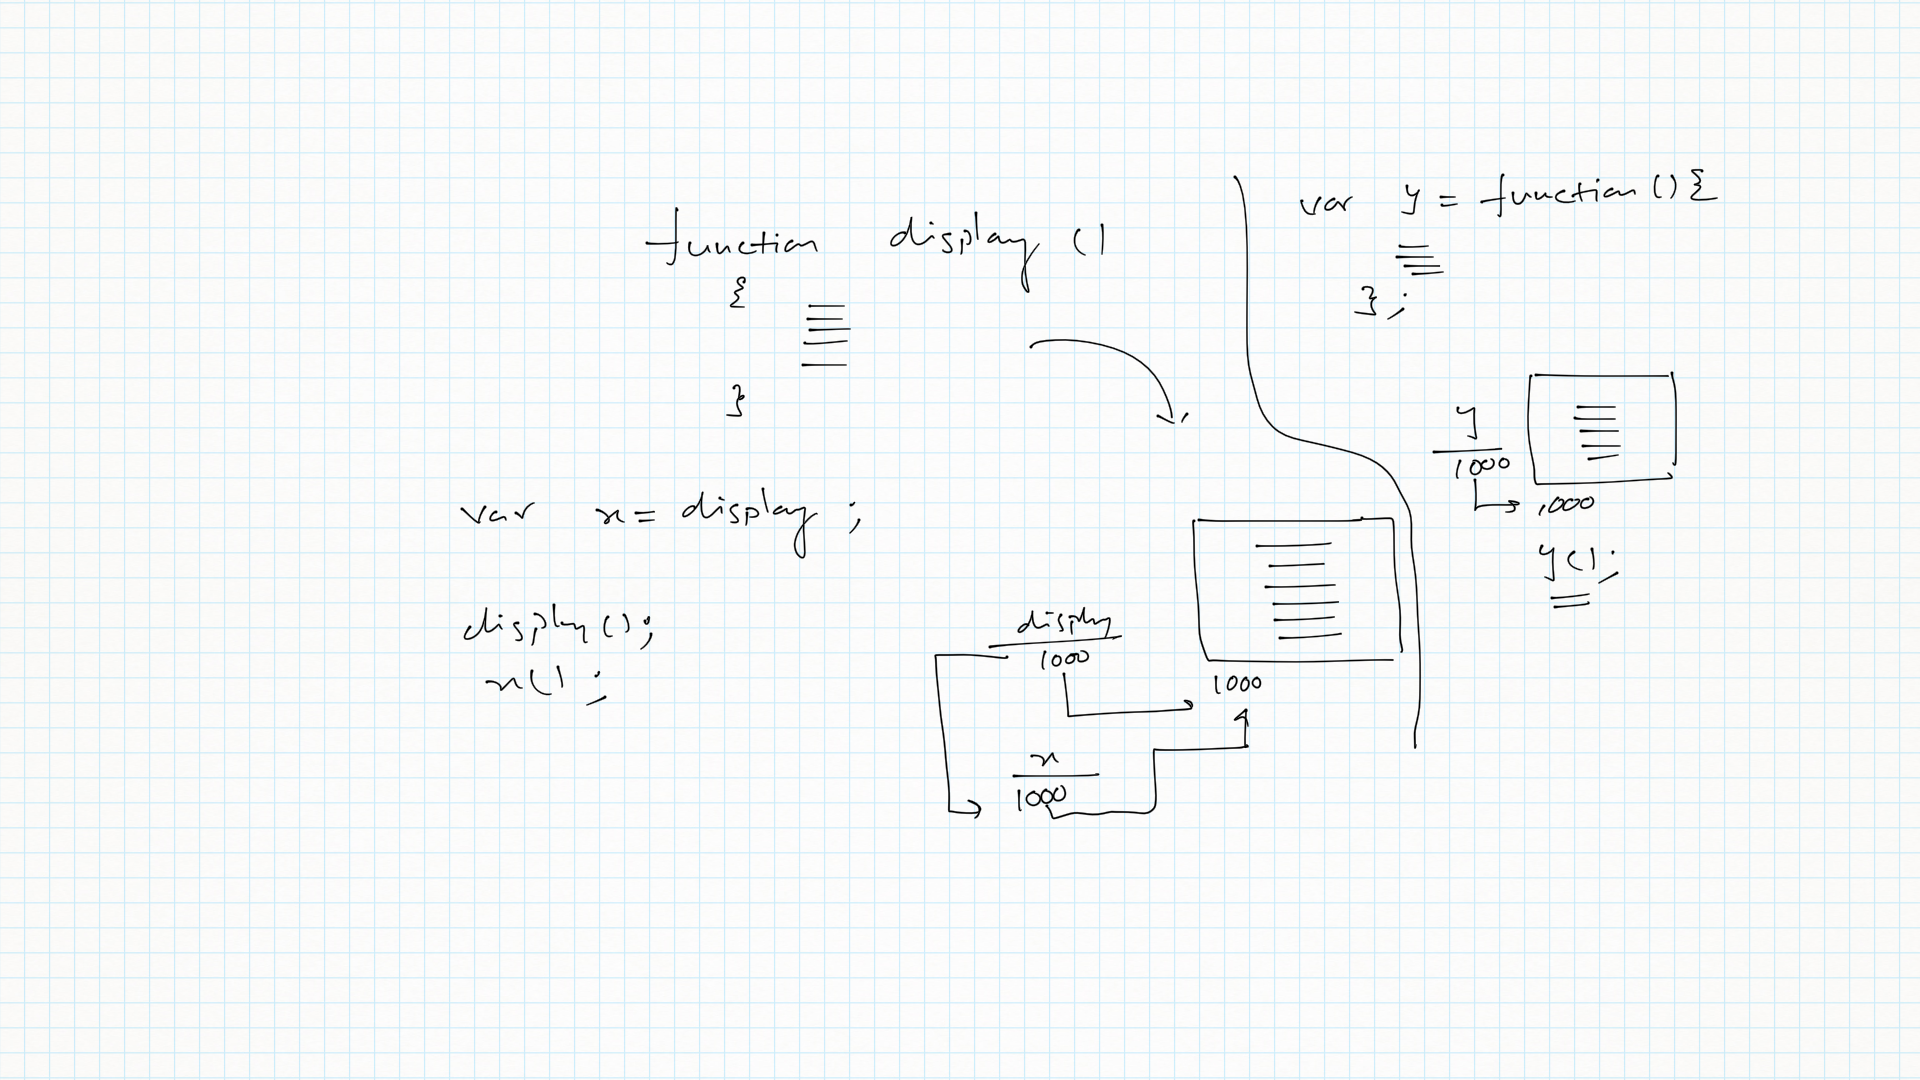 function display ()
{
}
var x = display ;
display ();
x() ;
display
1000
1000
x
1000
var y = function () {
} ;
y
1000
1000
y();